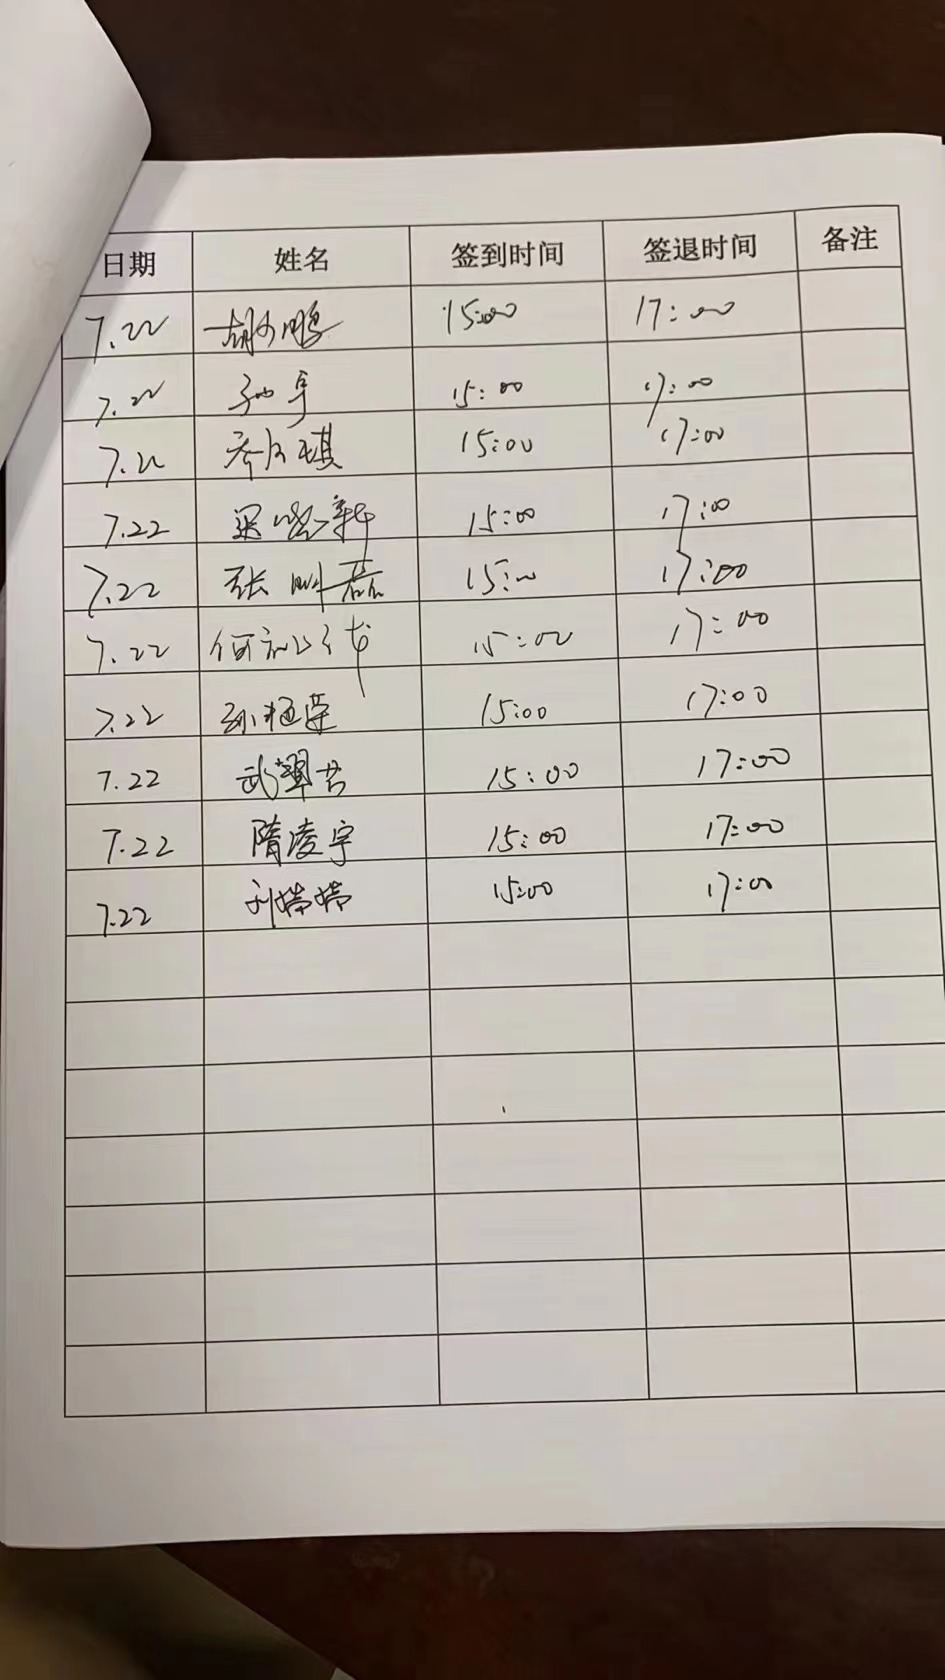 日期 姓名 签到时间 签退时间 备注
7.22 胡小鹏 15:00 17:00
7.22 15:00 17:00
7.22 15:00 17:00
7.22 15:00 17:00
7.22 张 15:00 17:00
7.22 何 15:00 17:00
7.22 孙 15:00 17:00
7.22 武翠 15:00 17:00
7.22 隋凌宇 15:00 17:00
7.22 刘婷婷 15:00 17:00